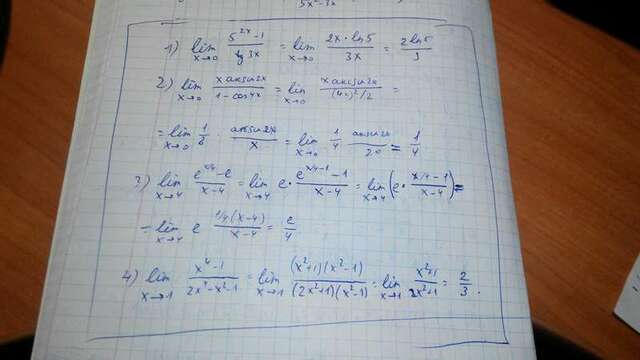 5x²-3x
1) lim x→0 (5^(2x) - 1)/(tg 3x) = lim x→0 (2x·ln5)/(3x) = (2ln5)/3
2) lim x→0 (x arcsin2x)/(1-cos4x) = lim x→0 (x arcsin2x)/((4x)²/2) =
= lim x→0 1/8 · (arcsin2x)/x = lim x→0 1/4 (arcsin2x)/(2x) = 1/4
3) lim x→4 (e^(x/4) - e)/(x-4) = lim x→4 e·(e^(x/4-1) - 1)/(x-4) = lim x→4 (e·(x/4-1)/(x-4)) =
= lim x→4 e (1/4(x-4))/(x-4) = e/4
4) lim x→1 (x⁴-1)/(2x⁴-x²-1) = lim x→1 ((x²+1)(x²-1))/((2x²+1)(x²-1)) = lim x→1 (x²+1)/(2x²+1) = 2/3.